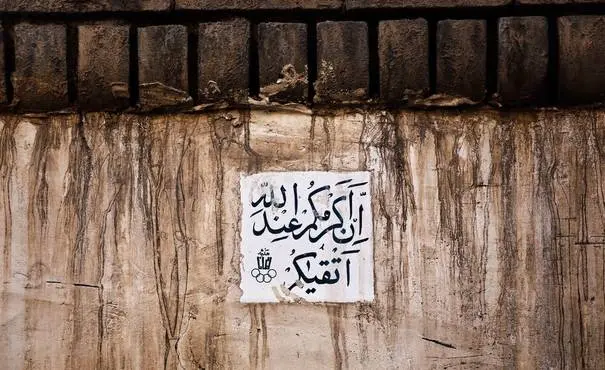 إنّ أكرمكم عند الله
أتقيكم